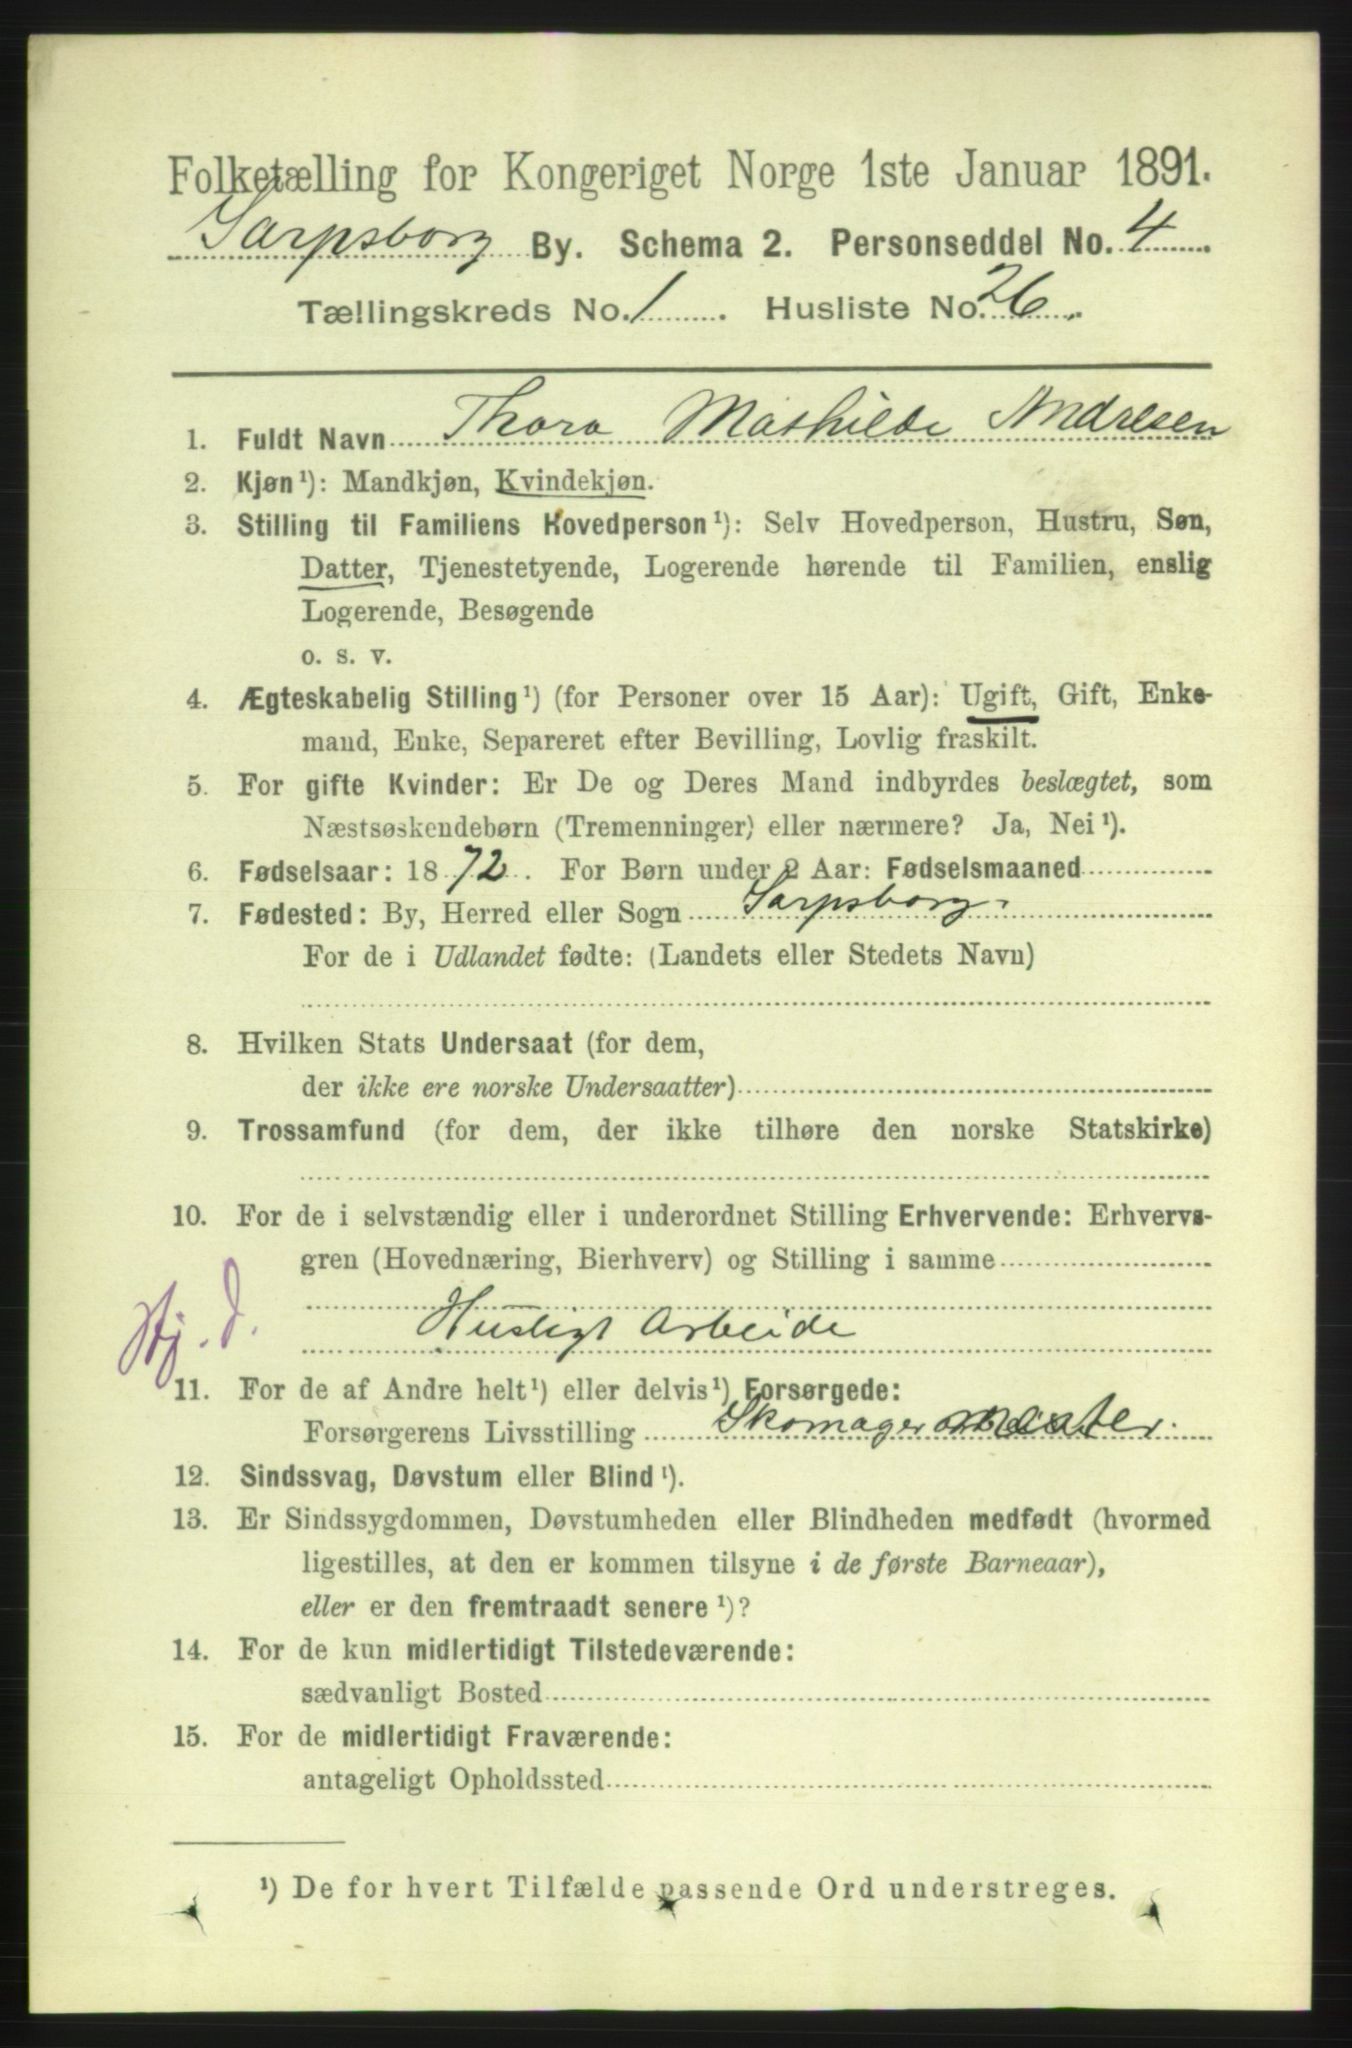 Folketælling for Kongeriget Norge 1ste Januar 1891.
Sarpsborg By. Schema 2. Personseddel No. 4
Tællingskreds No. 1. Husliste No. 26.
1. Fuldt Navn Thora Mathilde Andresen
2. Kjøn¹): Mandkjøn, Kvindekjøn.
3. Stilling til Familiens Hovedperson¹): Selv Hovedperson, Hustru, Søn,
Datter, Tjenestetyende, Logerende hørende til Familien, enslig
Logerende, Besøgende
o. s. v.
4. Ægteskabelig Stilling¹) (for Personer over 15 Aar): Ugift, Gift, Enke-
mand, Enke, Separeret efter Bevilling, Lovlig fraskilt.
5. For gifte Kvinder: Er De og Deres Mand indbyrdes beslægtet, som
Næstsøskendebørn (Tremenninger) eller nærmere? Ja, Nei¹).
6. Fødselsaar: 1872. For Børn under 2 Aar: Fødselsmaaned
7. Fødested: By, Herred eller Sogn Sarpsborg.
For de i Udlandet fødte: (Landets eller Stedets Navn)
8. Hvilken Stats Undersaat (for dem,
der ikke ere norske Undersaatter)
9. Trossamfund (for dem, der ikke tilhøre den norske Statskirke)
10. For de i selvstændig eller i underordnet Stilling Erhvervende: Erhvervs-
gren (Hovednæring, Bierhverv) og Stilling i samme
Husligt Arbeide
Hj. d.
11. For de af Andre helt¹) eller delvis¹) Forsørgede:
Forsørgerens Livsstilling Skomagermester.
12. Sindssvag, Døvstum eller Blind¹).
13. Er Sindssygdommen, Døvstumheden eller Blindheden medfødt (hvormed
ligestilles, at den er kommen tilsyne i de første Barneaar),
eller er den fremtraadt senere¹)?
14. For de kun midlertidigt Tilstedeværende:
sædvanligt Bosted
15. For de midlertidigt Fraværende:
antageligt Opholdssted
¹) De for hvert Tilfælde passende Ord understreges.